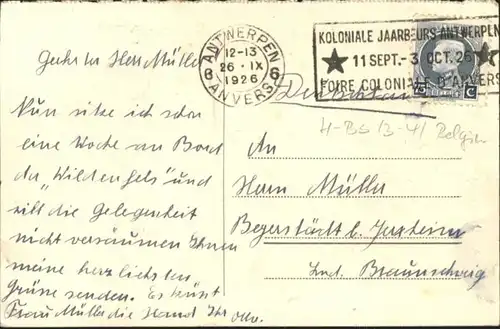 Geehrter Herr Müller
Nun sitze ich schon
eine Woche an Bord
der „Wildenfels" und
will die Gelegenheit
nicht versäumen Ihnen
meine herzlichsten
Grüße senden. Es küsst
Frau Müller die Hand Ihr Otto.
ANTWERPEN
12-13
26 · IX
1926
6 6
ANVERS
KOLONIALE JAARBEURS ANTWERPEN
11 SEPT.-3 OCT. 26
FOIRE COLONIALE D'ANVERS
75 C
Deutschland
An
Herrn Müller
b. Jerxheim
Land Braunschweig